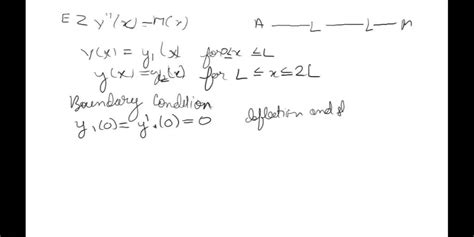 E I y''(x) = M(x) A — L — L — B
y(x) = y₁(x) for 0 ≤ x ≤ L
y(x) = y₂(x) for L ≤ x ≤ 2L
Boundary Condition
y₁(0) = y'₁(0) = 0 deflection and sl